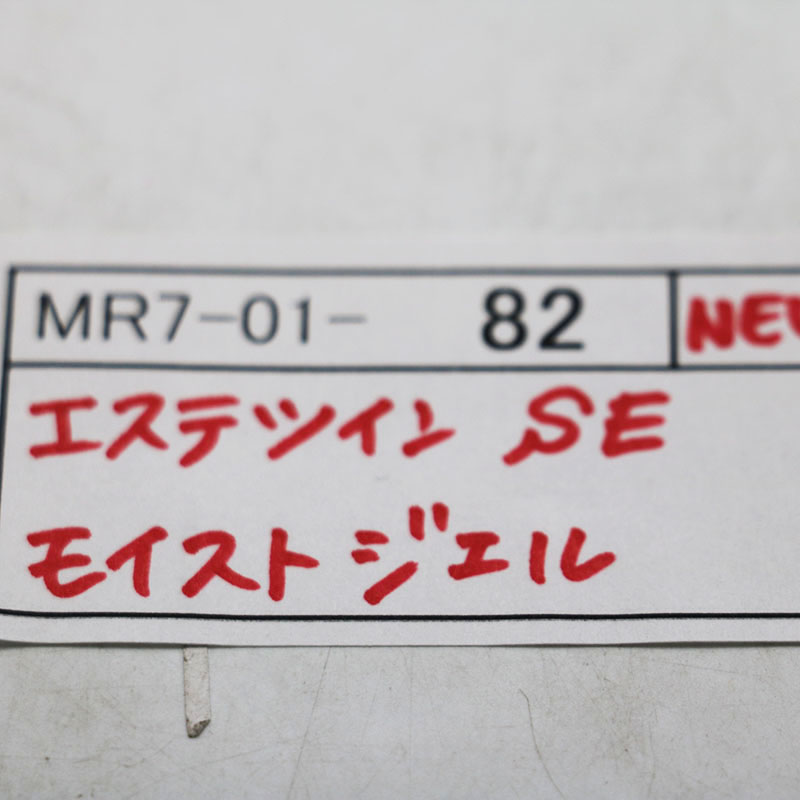 MR7-01- 82 NEW
エステツイン SE
モイストジェル